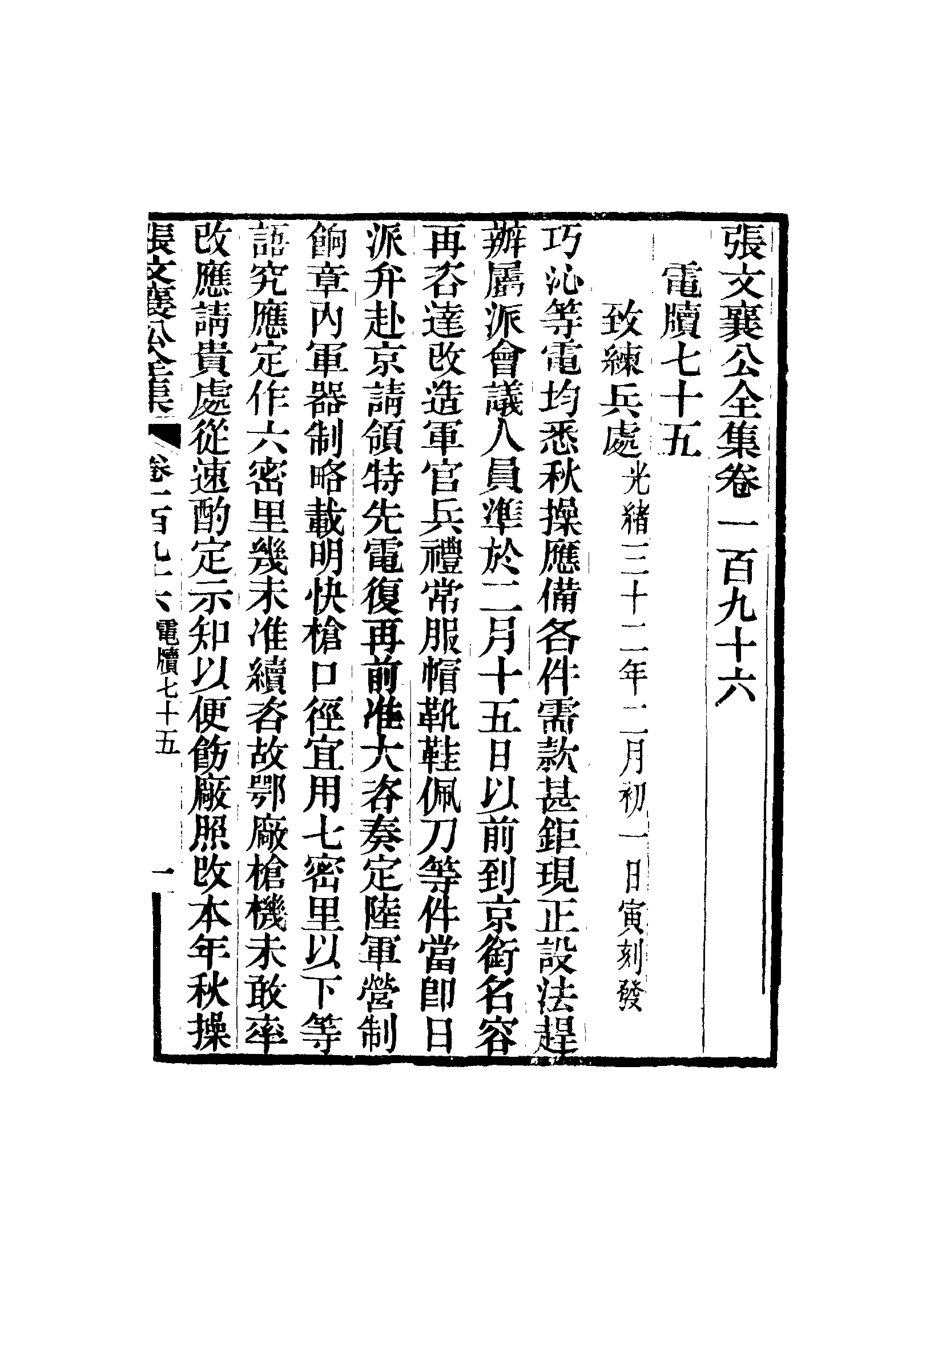 張文襄公全集卷一百九十六
電牘七十五
致練兵處光緒三十二年二月初一日寅刻發
巧沁等電均悉秋操應備各件需款甚鉅現正設法趕
辦屬派會議人員準於二月十五日以前到京銜名容
再咨達改造軍官兵禮常服帽靴鞋佩刀等件當卽日
派弁赴京請領特先電復再前准大咨奏定陸軍營制
餉章內軍器制略載明快槍口徑宜用七密里以下等
語究應定作六密里幾未准續咨故鄂廠槍機未敢率
改應請貴處從速酌定示知以便飭廠照改本年秋操
張文襄公全集 卷一百九十六 電牘七十五 一